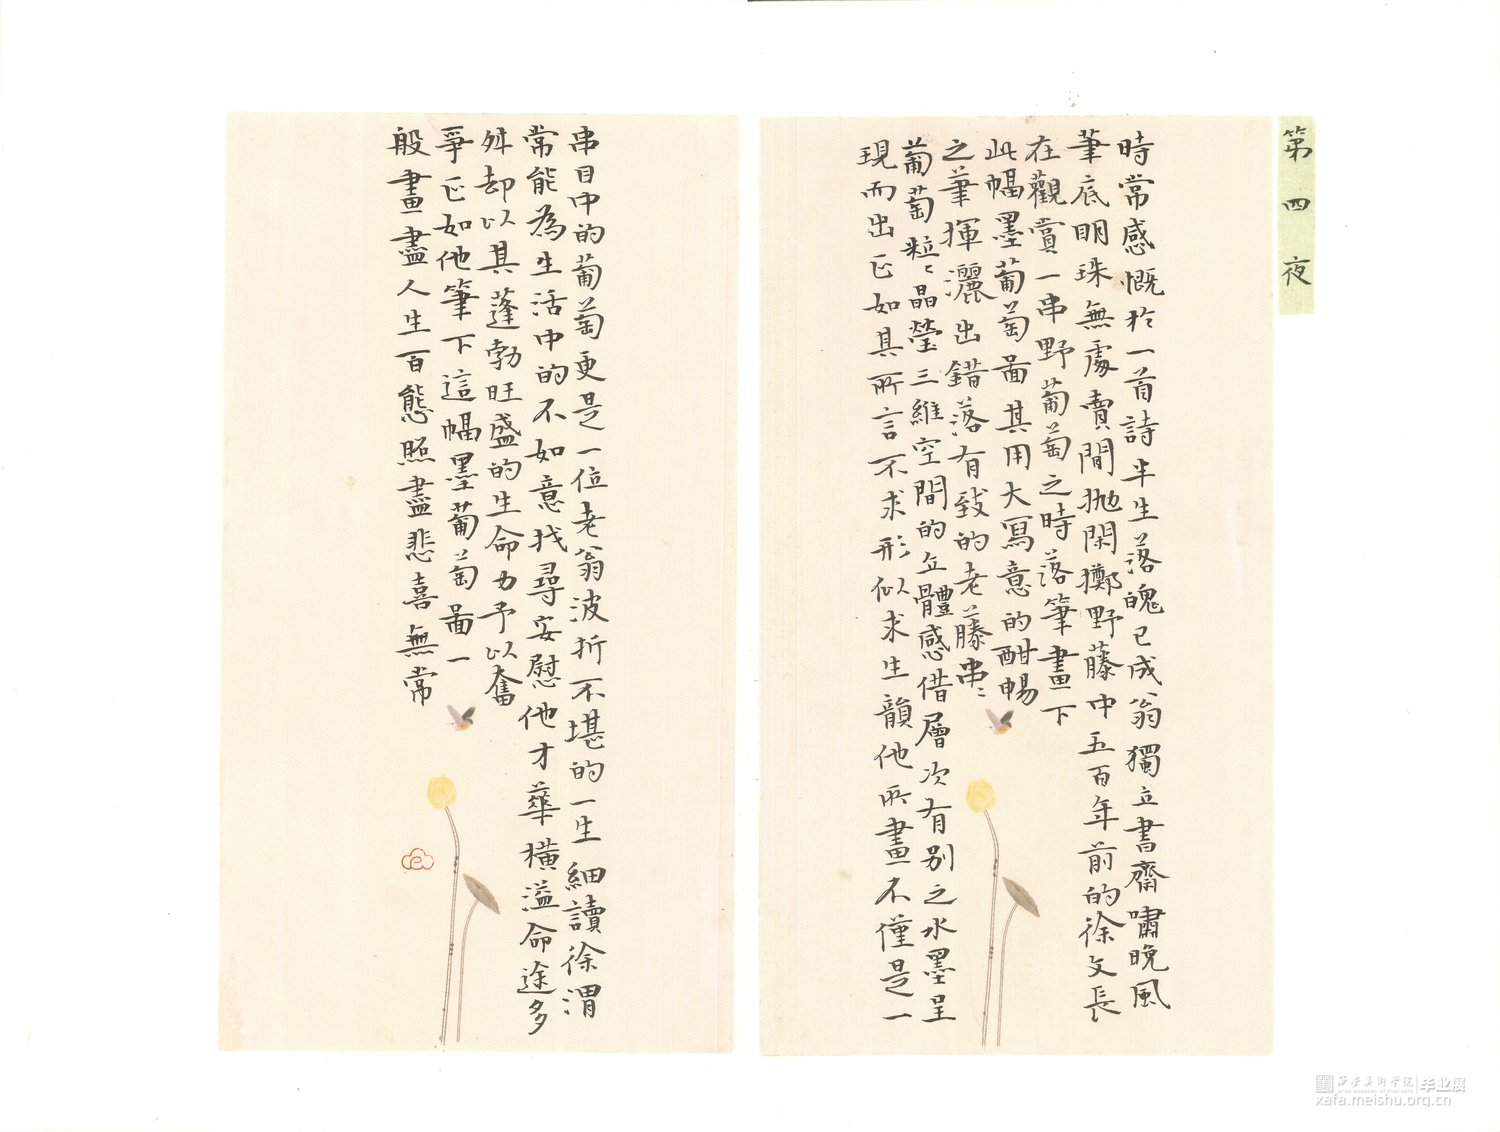 第四夜
時常感慨於一首詩半生落魄已成翁獨立書齋嘯晚風
筆底明珠無處賣閒拋閑擲野藤中五百年前的徐文長
在觀賞一串野葡萄之時落筆畫下
此幅墨葡萄圖其用大寫意的酣暢
之筆揮灑出錯落有致的老藤串〻
葡萄粒〻晶瑩三維空間的立體感借層次有別之水墨呈
現而出正如其所言不求形似求生韻他所畫不僅是一
串目中的葡萄更是一位老翁波折不堪的一生細讀徐渭
常能為生活中的不如意找尋安慰他才華橫溢命途多
舛却以其蓬勃旺盛的生命力予以奮
爭正如他筆下這幅墨葡萄圖一
般畫盡人生百態照盡悲喜無常
西安美術學院 毕业展
xafa.meishu.org.cn